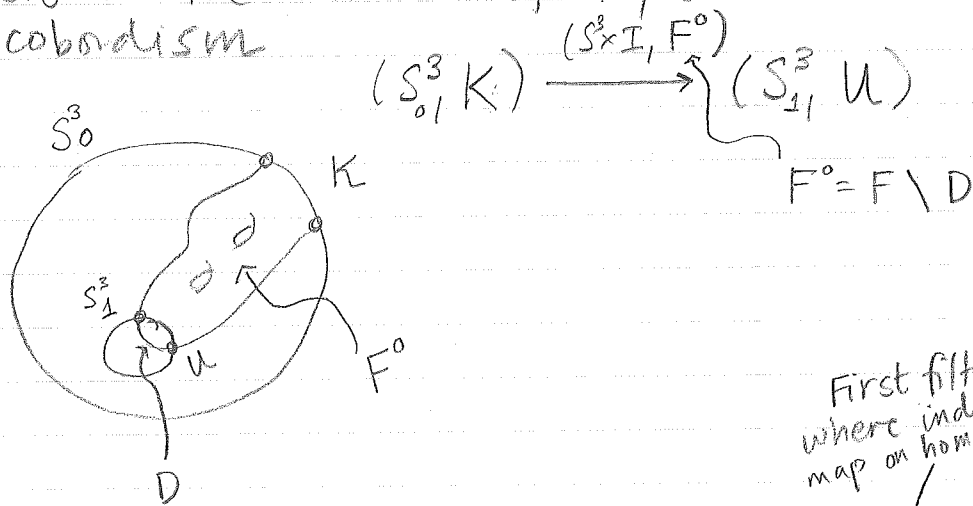 cobordism
(S³×I, F°)
(S³₀, K) → (S³₁, U)
F° = F \ D
S³₀
K
S³₁
U
F°
D
First filt
where ind
map on hom